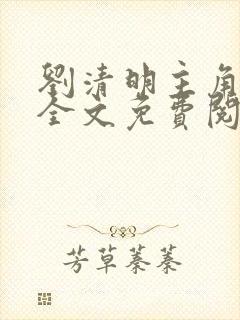 劉清明主角
全文免費閱
芳草萋萋